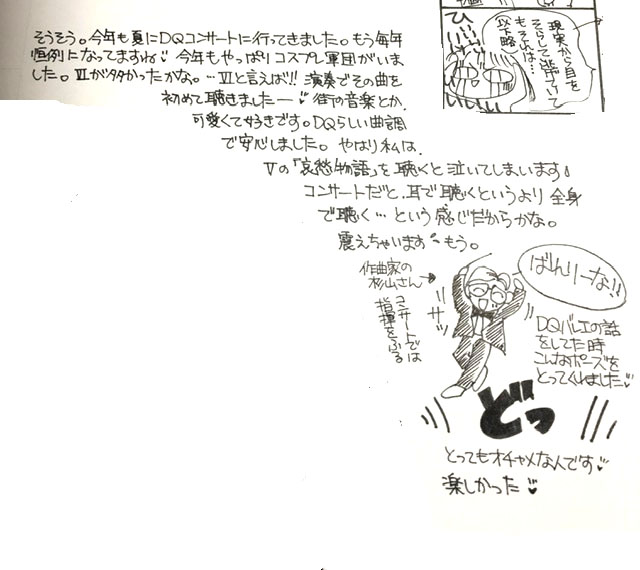 そうそう。今年も夏にDQコンサートに行ってきました。もう毎年
恒例になってますね♡ 今年もやっぱりコスプレ軍団がいま
した。Ⅶが多かったかな。…Ⅶと言えば!! 演奏でその曲を
初めて聴きましたー♡ 街の音楽とか、
可愛くて好きです。DQらしい曲調
で安心しました。やはり私は、
Ⅴの「哀愁物語」を聴くと泣いてしまいます。
コンサートだと、耳で聴くというより全身
で聴く…という感じだからかな。
震えちゃいます もう。
現実から目を
そらして逃げていて
もそれは…
以下略
ひぃぃ
作曲家の
杉山さん→
コンサートでは
指揮をふる
ばんりーな!!
サッ
DQバレエの話
をしてた時
こんなポーズを
とってくれました♡
どっ
とってもオチャメなんです♡
楽しかった♡